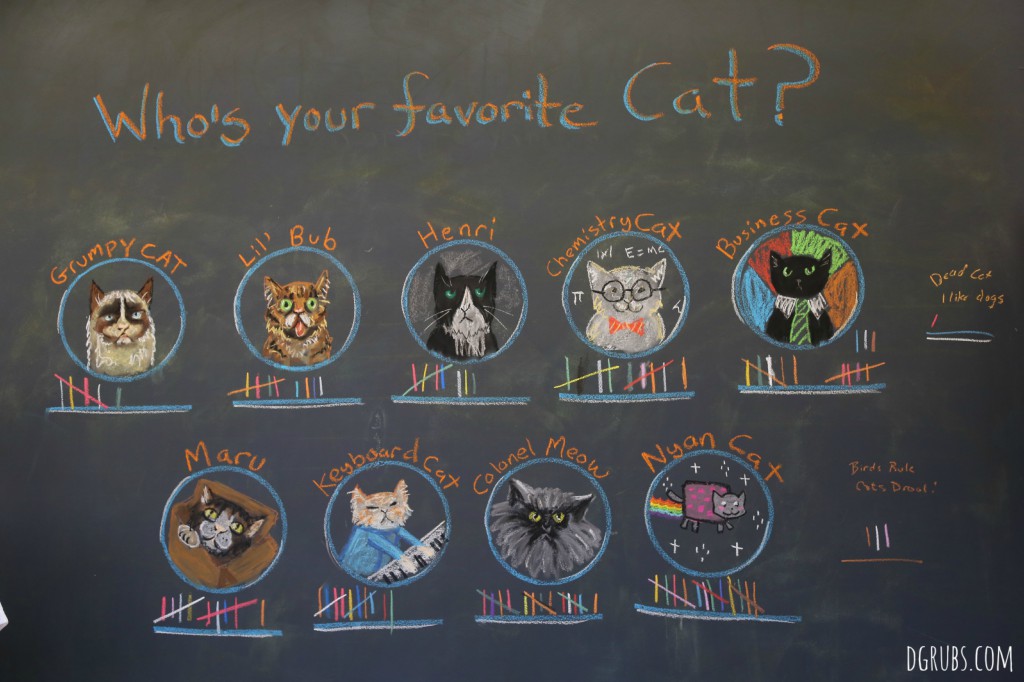 Who's your favorite Cat?
GRUMPY CAT
Lil' Bub
Henri
Chemistry Cat
Business Cat
π
E=MC
Dead Cat
I like dogs
Maru
Keyboard Cat
Colonel Meow
Nyan Cat
Birds Rule
Cats Drool!
DGRUBS.COM